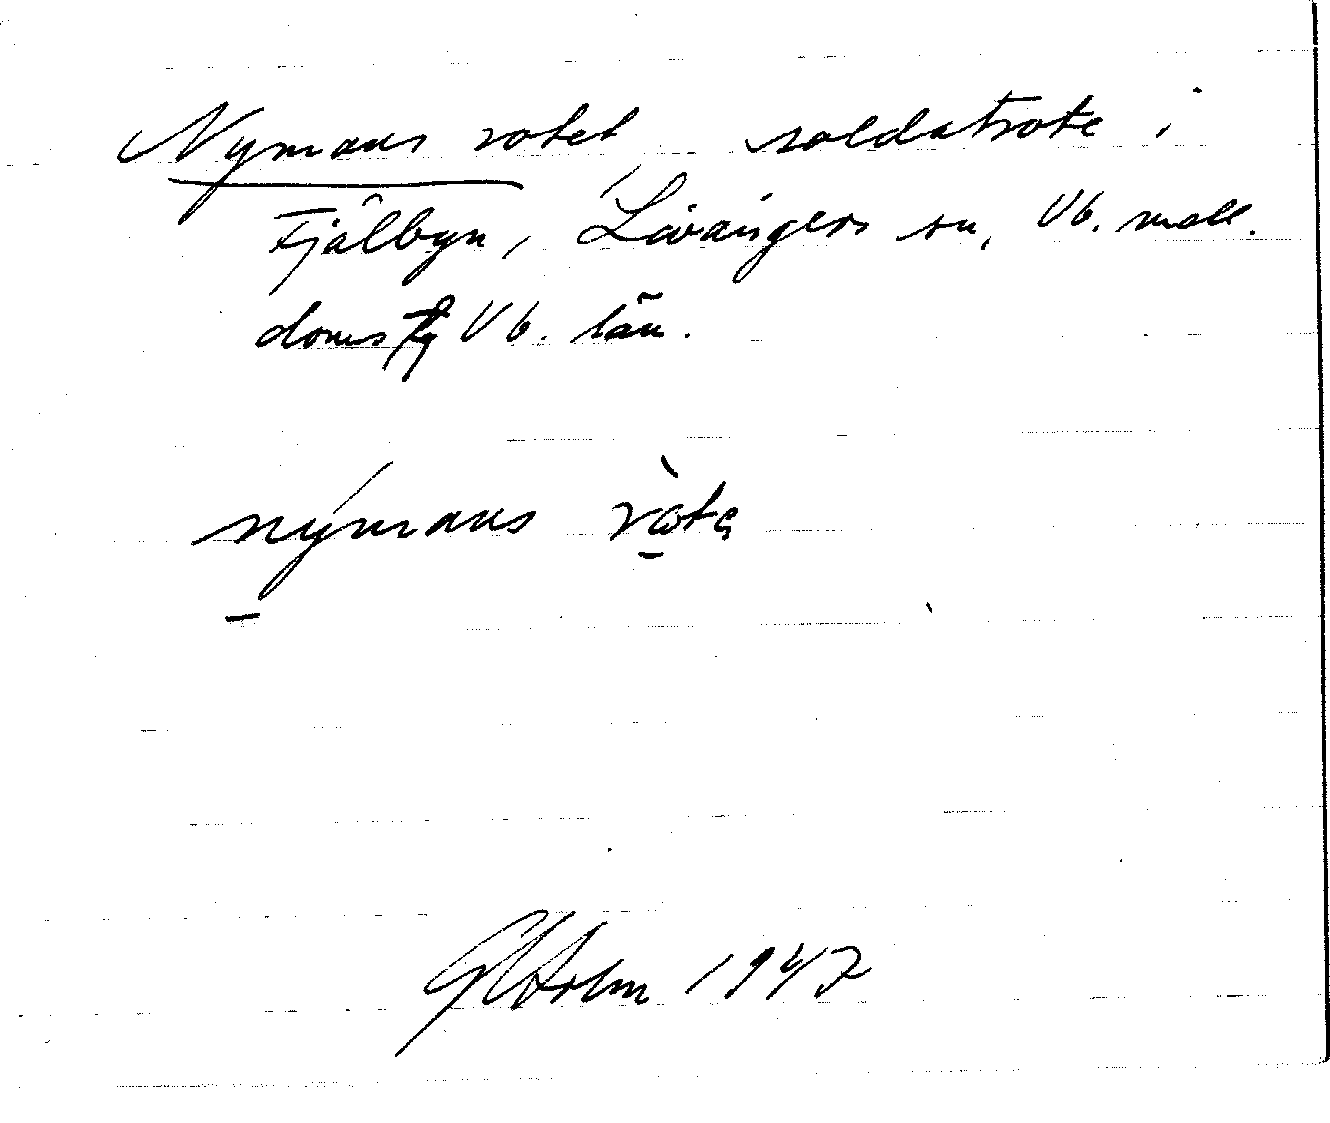 Nymans rotet soldatrote i
Fjälbyn, Lövångers sn, Vb. mell.
doms Vb. län.
nýmans ròte
GHolm 1947